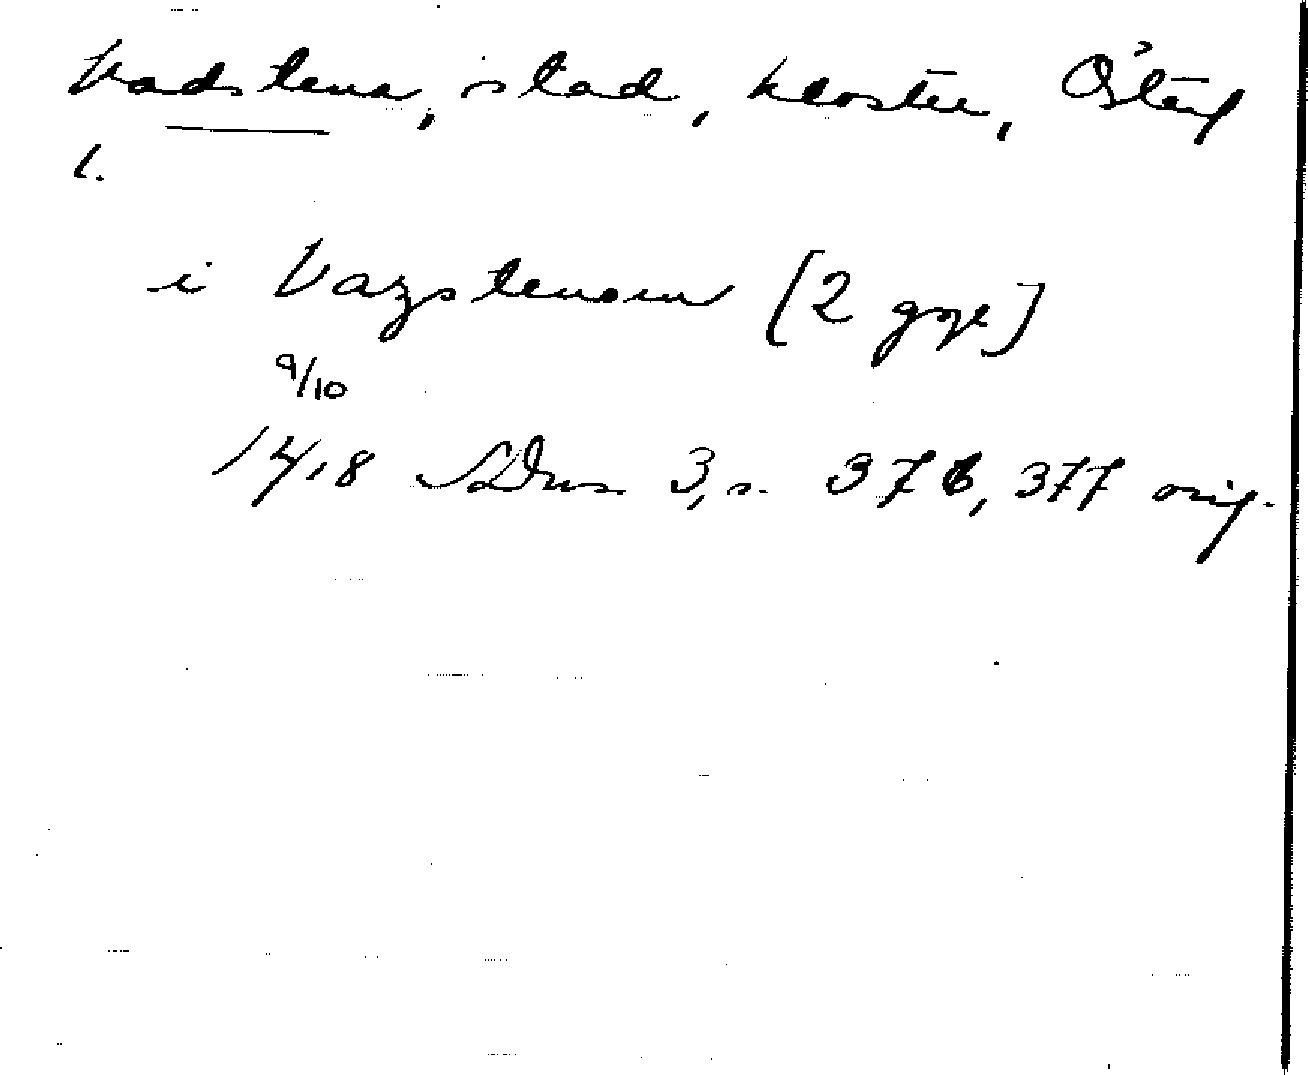 Vadstena, stad, kloster, Östg
1.
i Vazstenom [2 ggr]
9/10
1418 SDns 3, s. 376, 377 orig.